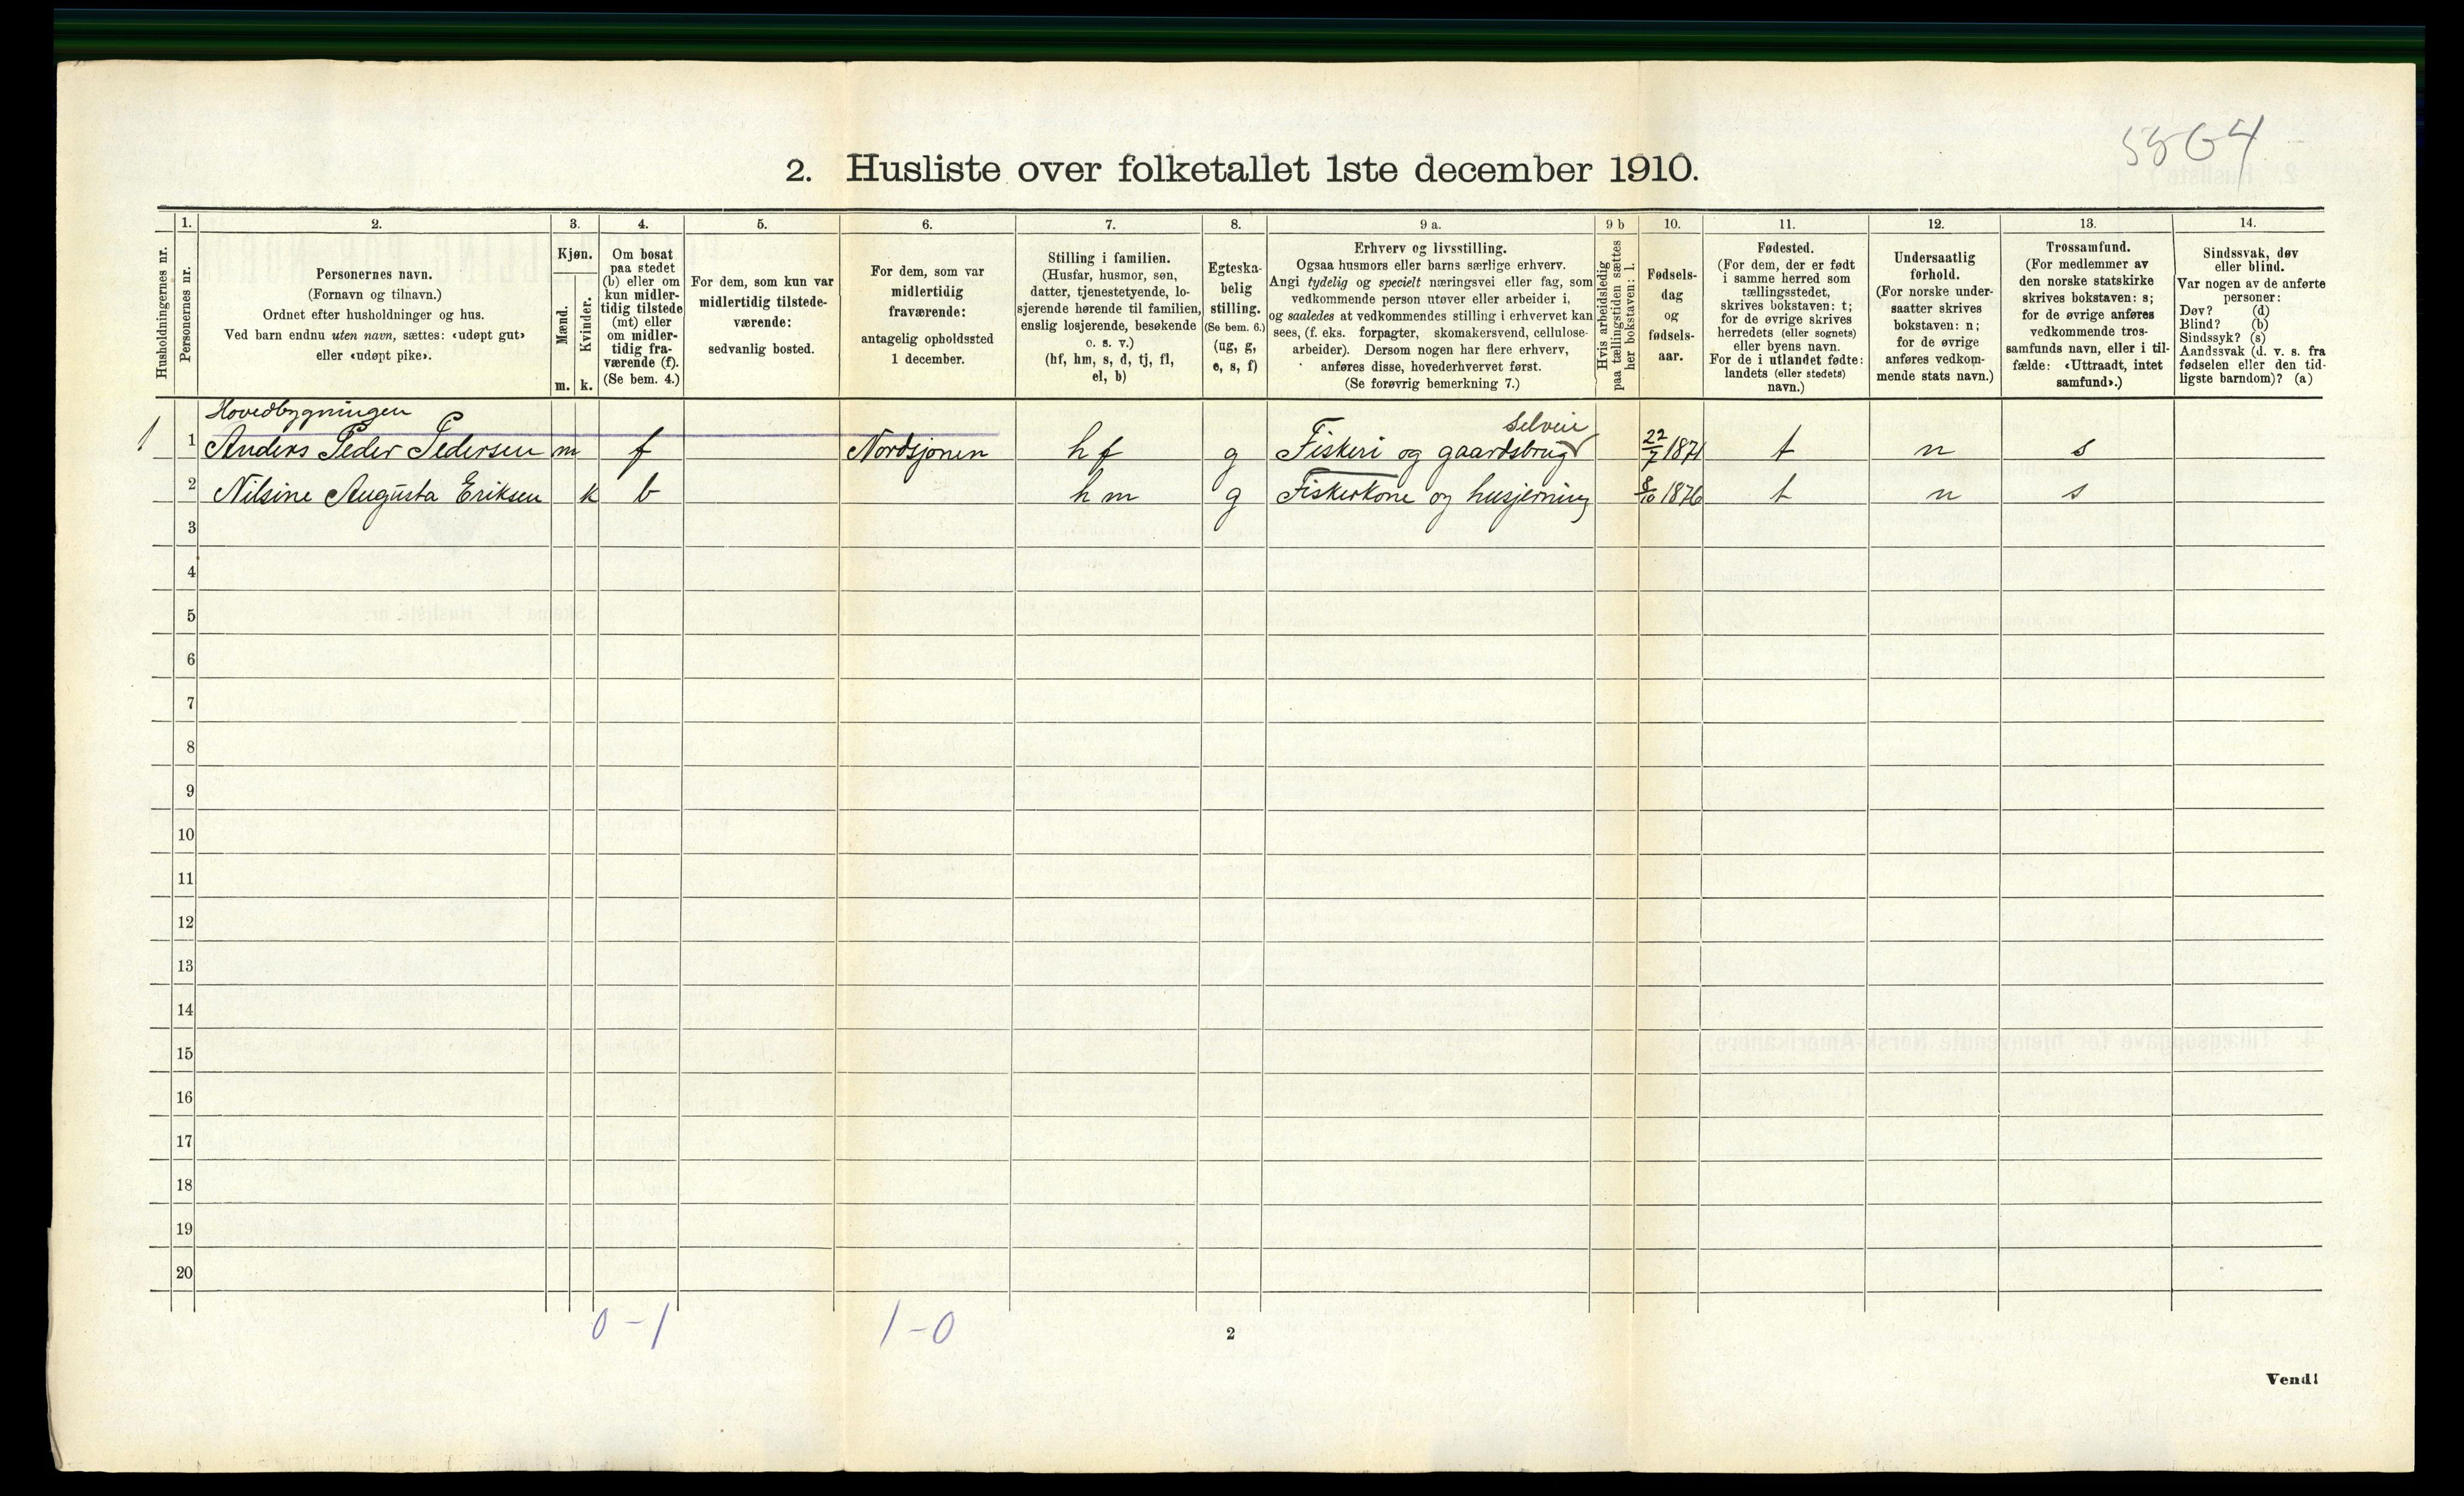 5864
2. Husliste over folketallet 1ste december 1910.
Husholdningernes nr.
1.
Personernes nr.
2.
Personernes navn.
(Fornavn og tilnavn.)
Ordnet efter husholdninger og hus.
Ved barn endnu uten navn, sættes: «udøpt gut»
eller «udøpt pike».
3.
Kjøn.
Mænd.
m.
Kvinder.
k.
4.
Om bosat
paa stedet
(b) eller om
kun midler-
tidig tilstede
(mt) eller
om midler-
tidig fra-
værende (f).
(Se bem. 4.)
5.
For dem, som kun var
midlertidig tilstede-
værende:
sedvanlig bosted.
6.
For dem, som var
midlertidig
fraværende:
antagelig opholdssted
1 december.
7.
Stilling i familien.
(Husfar, husmor, søn,
datter, tjenestetyende, lo-
sjerende hørende til familien,
enslig losjerende, besøkende
o. s. v.)
(hf, hm, s, d, tj, fl,
el, b)
8.
Egteska-
belig
stilling.
(Se bem. 6.)
(ug, g,
e, s, f)
9 a.
Erhverv og livsstilling.
Ogsaa husmors eller barns særlige erhverv.
Angi tydelig og specielt næringsvei eller fag, som
vedkommende person utøver eller arbeider i,
og saaledes at vedkommendes stilling i erhvervet kan
sees, (f. eks. forpagter, skomakersvend, cellulose-
arbeider). Dersom nogen har flere erhverv,
anføres disse, hovederhvervet først.
(Se forøvrig bemerkning 7.)
9 b
Hvis arbeidsledig
paa tællingstiden sættes
her bokstaven: l.
10.
Fødsels-
dag
og
fødsels-
aar.
11.
Fødested.
(For dem, der er født
i samme herred som
tællingsstedet,
skrives bokstaven: t;
for de øvrige skrives
herredets (eller sognets)
eller byens navn.
For de i utlandet fødte:
landets (eller stedets)
navn.)
12.
Undersaatlig
forhold.
(For norske under-
saatter skrives
bokstaven: n;
for de øvrige
anføres vedkom-
mende stats navn.)
13.
Trossamfund.
(For medlemmer av
den norske statskirke
skrives bokstaven: s;
for de øvrige anføres
vedkommende tros-
samfunds navn, eller i til-
fælde: «Uttraadt, intet
samfund».)
14.
Sindssvak, døv
eller blind.
Var nogen av de anførte
personer:
Døv? (d)
Blind? (b)
Sindssyk? (s)
Aandssvak (d. v. s. fra
fødselen eller den tid-
ligste barndom)? (a)
Hovedbygningen
Selveie
1 1 Anders Peder Pedersen m f Nordsjøen hf g Fiskeri og gaardsbrug 22/7 1871 t n s
2 Nilsine Augusta Eriksen k b hm g Fiskerkone og husjerning 8/10 1876 t n s
3
4
5
6
7
8
9
10
11
12
13
14
15
16
17
18
19
20
0-1 1-0
2
Vend!